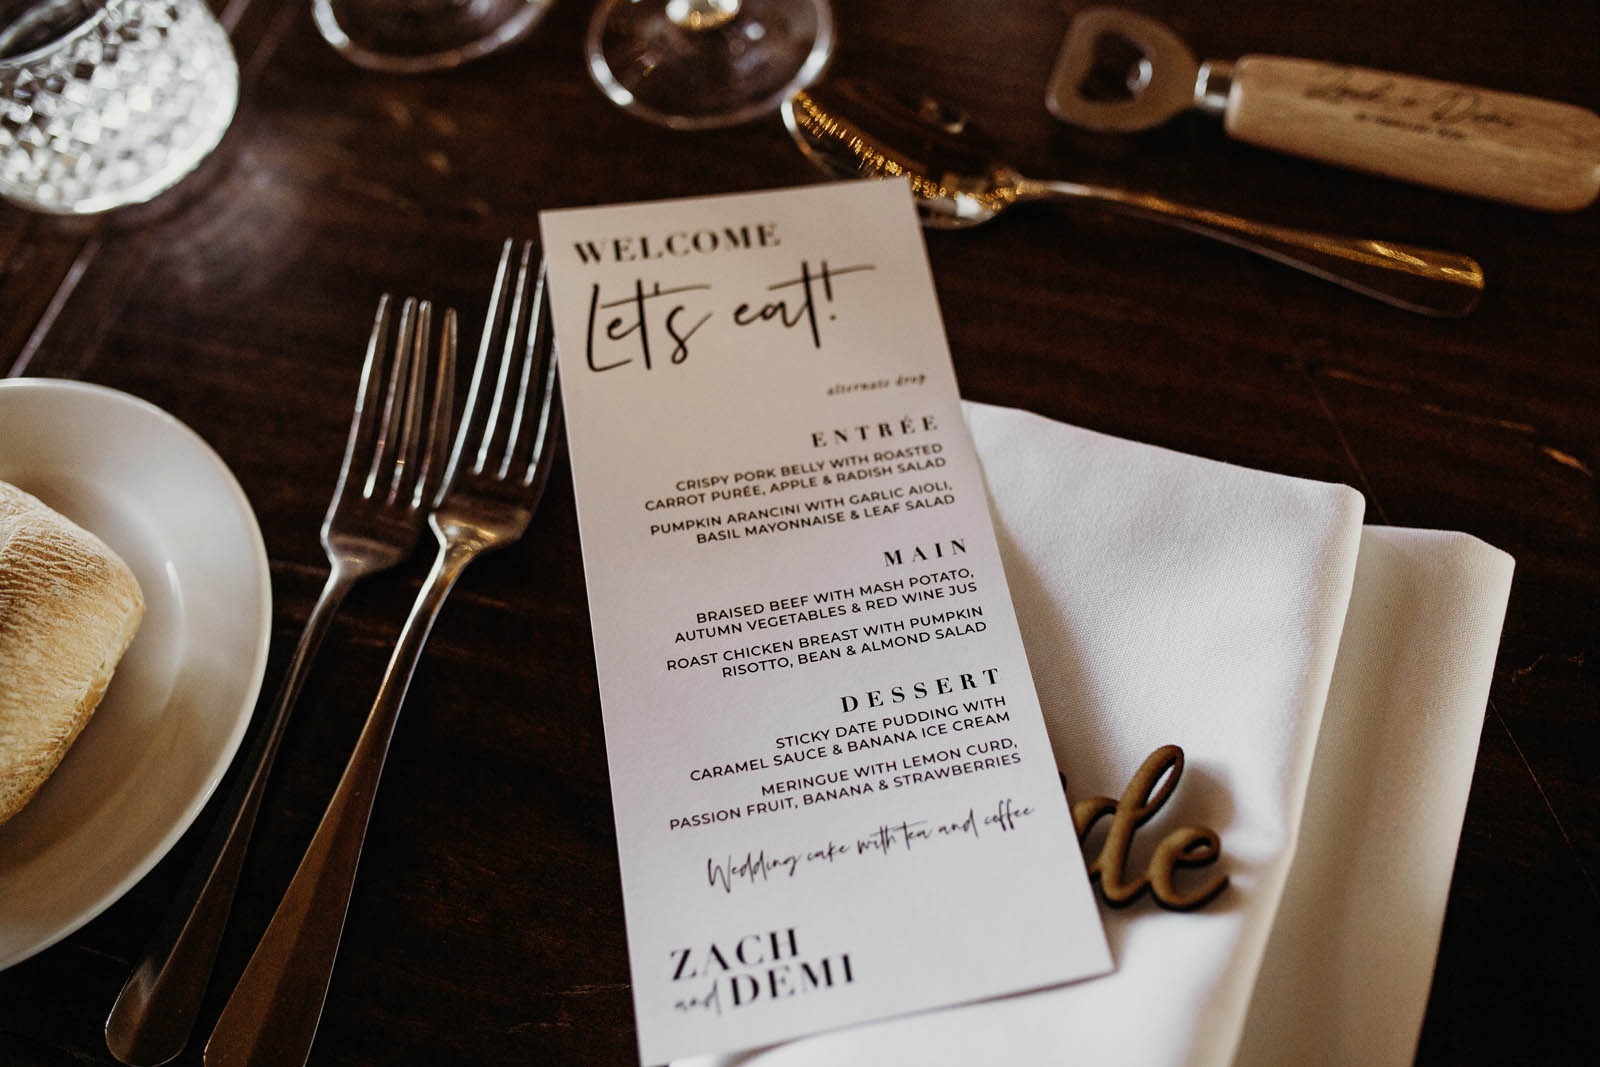 WELCOME
Let's eat!
alternate drop
ENTRÉE
CRISPY PORK BELLY WITH ROASTED
CARROT PURÉE, APPLE & RADISH SALAD
PUMPKIN ARANCINI WITH GARLIC AIOLI,
BASIL MAYONNAISE & LEAF SALAD
MAIN
BRAISED BEEF WITH MASH POTATO,
AUTUMN VEGETABLES & RED WINE JUS
ROAST CHICKEN BREAST WITH PUMPKIN
RISOTTO, BEAN & ALMOND SALAD
DESSERT
STICKY DATE PUDDING WITH
CARAMEL SAUCE & BANANA ICE CREAM
MERINGUE WITH LEMON CURD,
PASSION FRUIT, BANANA & STRAWBERRIES
Wedding cake with tea and coffee
ZACH
and DEMI
de
Zach & Demi